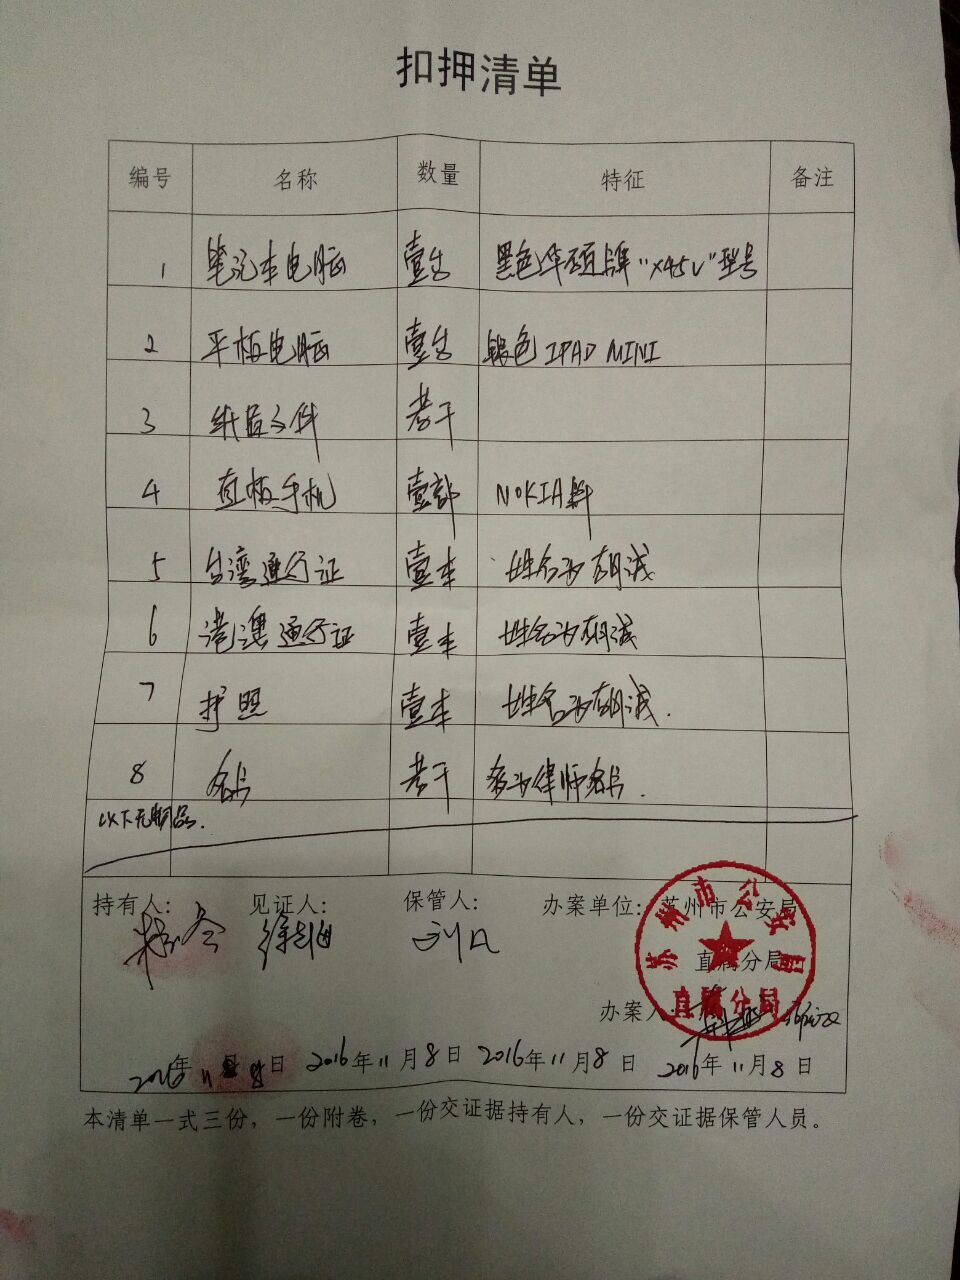 扣押清单
编号 名称 数量 特征 备注
1 笔记本电脑 壹台 黑色华硕牌"X45V"型号
2 平板电脑 壹台 银色 IPAD MINI
3 纸质文件 若干
4 直板手机 壹部 NOKIA牌
5 台湾通行证 壹本 姓名为胡诚
6 港澳通行证 壹本 姓名为胡诚
7 护照 壹本 姓名为胡诚.
8 名片 若干 多为律师名片.
以下无物品.
持有人: 见证人: 保管人: 办案单位: 苏州市公安局
直属分局
苏州市公安局
直属分局
办案人
2016年11月8日 2016年11月8日 2016年11月8日 2016年11月8日
本清单一式三份，一份附卷，一份交证据持有人，一份交证据保管人员。